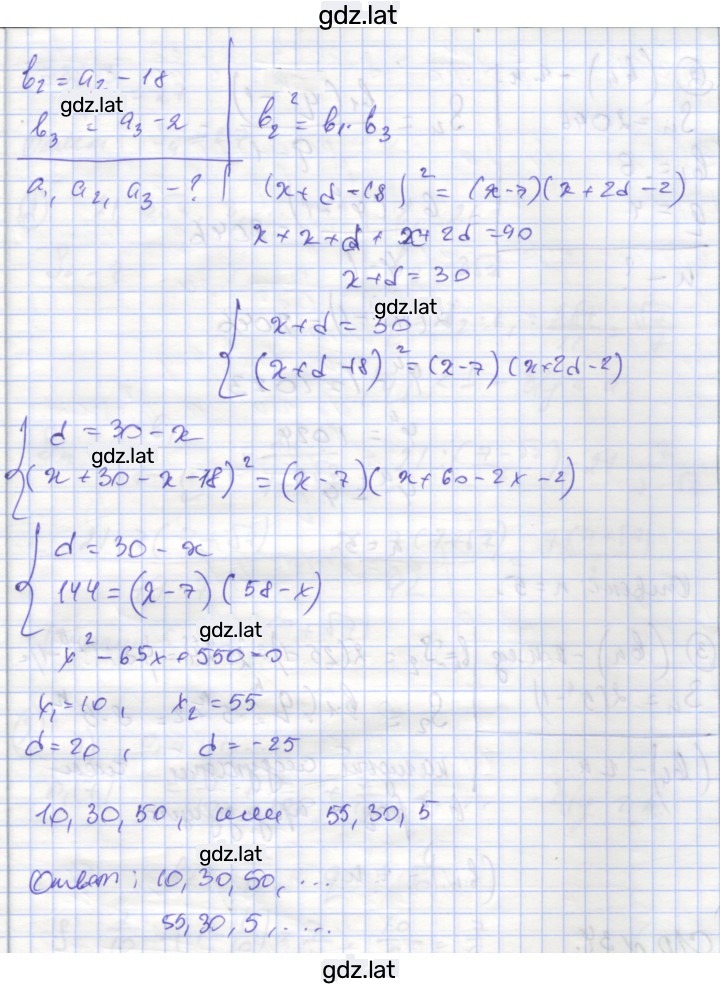 gdz.lat
b₂ = a₂ - 18
gdz.lat
b₃ = a₃ - 2
b₂² = b₁ · b₃
a₁, a₂, a₃ - ?
(x + d - 18)² = (x - 7)(x + 2d - 2)
x + x + d + x + 2d = 90
x + d = 30
gdz.lat
x + d = 30
(x + d - 18)² = (x - 7)(x + 2d - 2)
d = 30 - x
gdz.lat
(x + 30 - x - 18)² = (x - 7)(x + 60 - 2x - 2)
d = 30 - x
144 = (x - 7)(58 - x)
gdz.lat
x² - 65x + 550 = 0
x₁ = 10, x₂ = 55
d = 20, d = -25
10, 30, 50, или 55, 30, 5
gdz.lat
Ответ: 10, 30, 50, ...
55, 30, 5, ....
gdz.lat